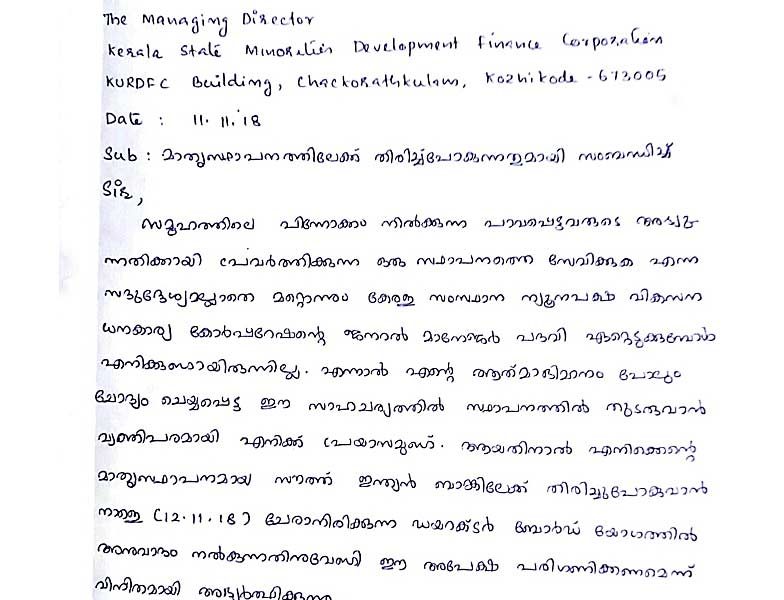 The Managing Director
Kerala State Minorities Development Finance Corporation
KURDFC Building, Chackorathkulam, Kozhikode - 673005
Date : 11.11.'18
Sub : മാതൃസ്ഥാപനത്തിലേക്ക് തിരിച്ച്പോകുന്നതുമായി സംബന്ധിച്ച്
Sir,
സമൂഹത്തിലെ പിന്നോക്കം നിൽക്കുന്ന പാവപ്പെട്ടവരുടെ അഭ്യു-
ന്നതിക്കായി പ്രവർത്തിക്കുന്ന ഒരു സ്ഥാപനത്തെ സേവിക്കുക എന്ന
സദുദ്ദേശ്യമല്ലാതെ മറ്റൊന്നും കേരള സംസ്ഥാന ന്യൂനപക്ഷ വികസന
ധനകാര്യ കോർപ്പറേഷന്റെ ജനറൽ മാനേജർ പദവി ഏറ്റെടുക്കുമ്പോൾ
എനിക്കുണ്ടായിരുന്നില്ല. എന്നാൽ എന്റെ ആത്മാഭിമാനം പോലും
ചോദ്യം ചെയ്യപ്പെട്ട ഈ സാഹചര്യത്തിൽ സ്ഥാപനത്തിൽ തുടരുവാൻ
വ്യക്തിപരമായി എനിക്ക് പ്രയാസമുണ്ട്. ആയതിനാൽ എനിക്കെന്റെ
മാതൃസ്ഥാപനമായ സൗത്ത് ഇന്ത്യൻ ബാങ്കിലേക്ക് തിരിച്ചുപോകുവാൻ
നാളെ (12.11.18) ചേരാനിരിക്കുന്ന ഡയറക്ടർ ബോർഡ് യോഗത്തിൽ
അനുവാദം നൽകുന്നതിനുവേണ്ടി ഈ അപേക്ഷ പരിഗണിക്കണമെന്ന്
വിനീതമായി അഭ്യർത്ഥിക്കുന്നു